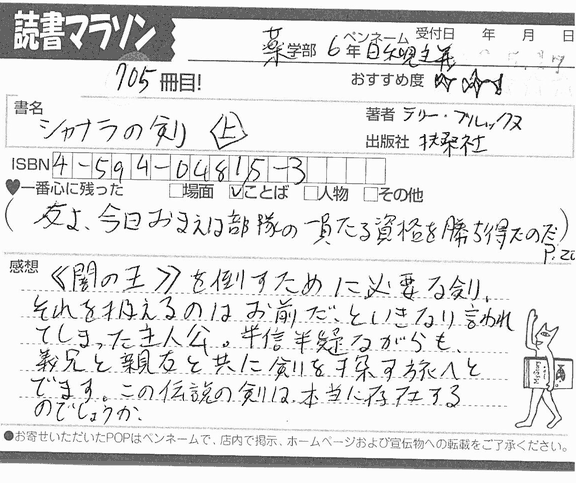 読書マラソン
ペンネーム 受付日 年 月 日
薬学部 6年 自然現主義
705冊目!
おすすめ度 ☆☆☆
書名
シャナラの剣 上
著者 テリー・ブルックス
出版社 扶桑社
ISBN 4-594-04815-3
♥一番心に残った □場面 ☑ことば □人物 □その他
(友よ、今日おまえは部隊の一員たる資格を勝ち得たのだ)
P.20
感想
《闇の王》を倒すために必要な剣、
それを扱えるのはお前だ、といきなり言われ
てしまった主人公。半信半疑ながらも、
義兄と親友と共に剣を探す旅へと
でます。この伝説の剣は本当に存在する
のでしょうか。
●お寄せいただいたPOPはペンネームで、店内で掲示、ホームページおよび宣伝物への転載をご了承ください。